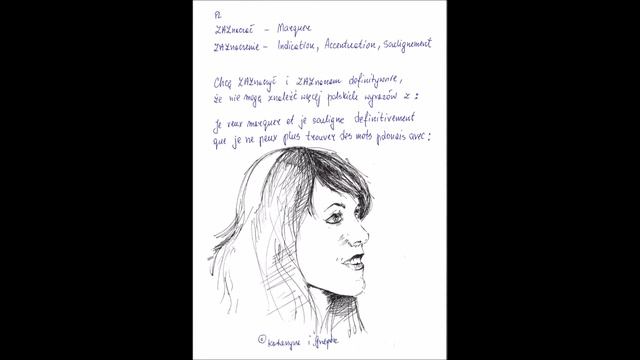 PL
ZAZnaczać - Marquer
ZAZnaczenie - Indication, Accentuation, soulignement
Chcę ZAZnaczyć i ZAZnaczam definitywnie,
że nie mogą znaleźć więcej polskich wyrazów z :
Je veux marquer et je souligne definitivement
que je ne peux plus trouver des mots polonais avec :
© Katarzyna i